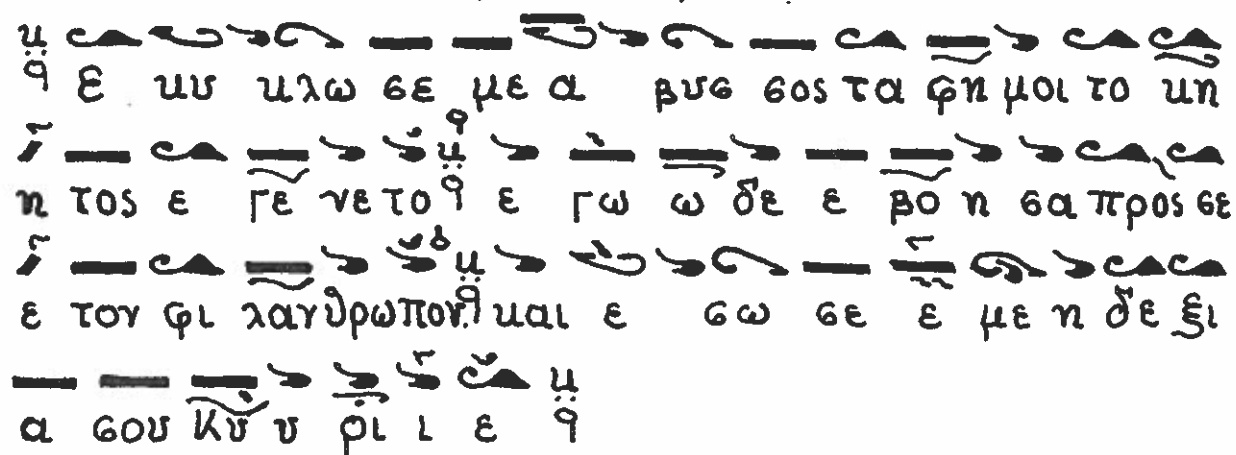 ε κυ κλω σε με α βυσ σος τα φη μοι το κη
η τος ε γε νε το ε γω ω δε ε βο η σα προς σε
ε τον φι λαν θρω πον. και ε σω σε ε με η δε ξι
α σου Κυ υ ρι ι ε